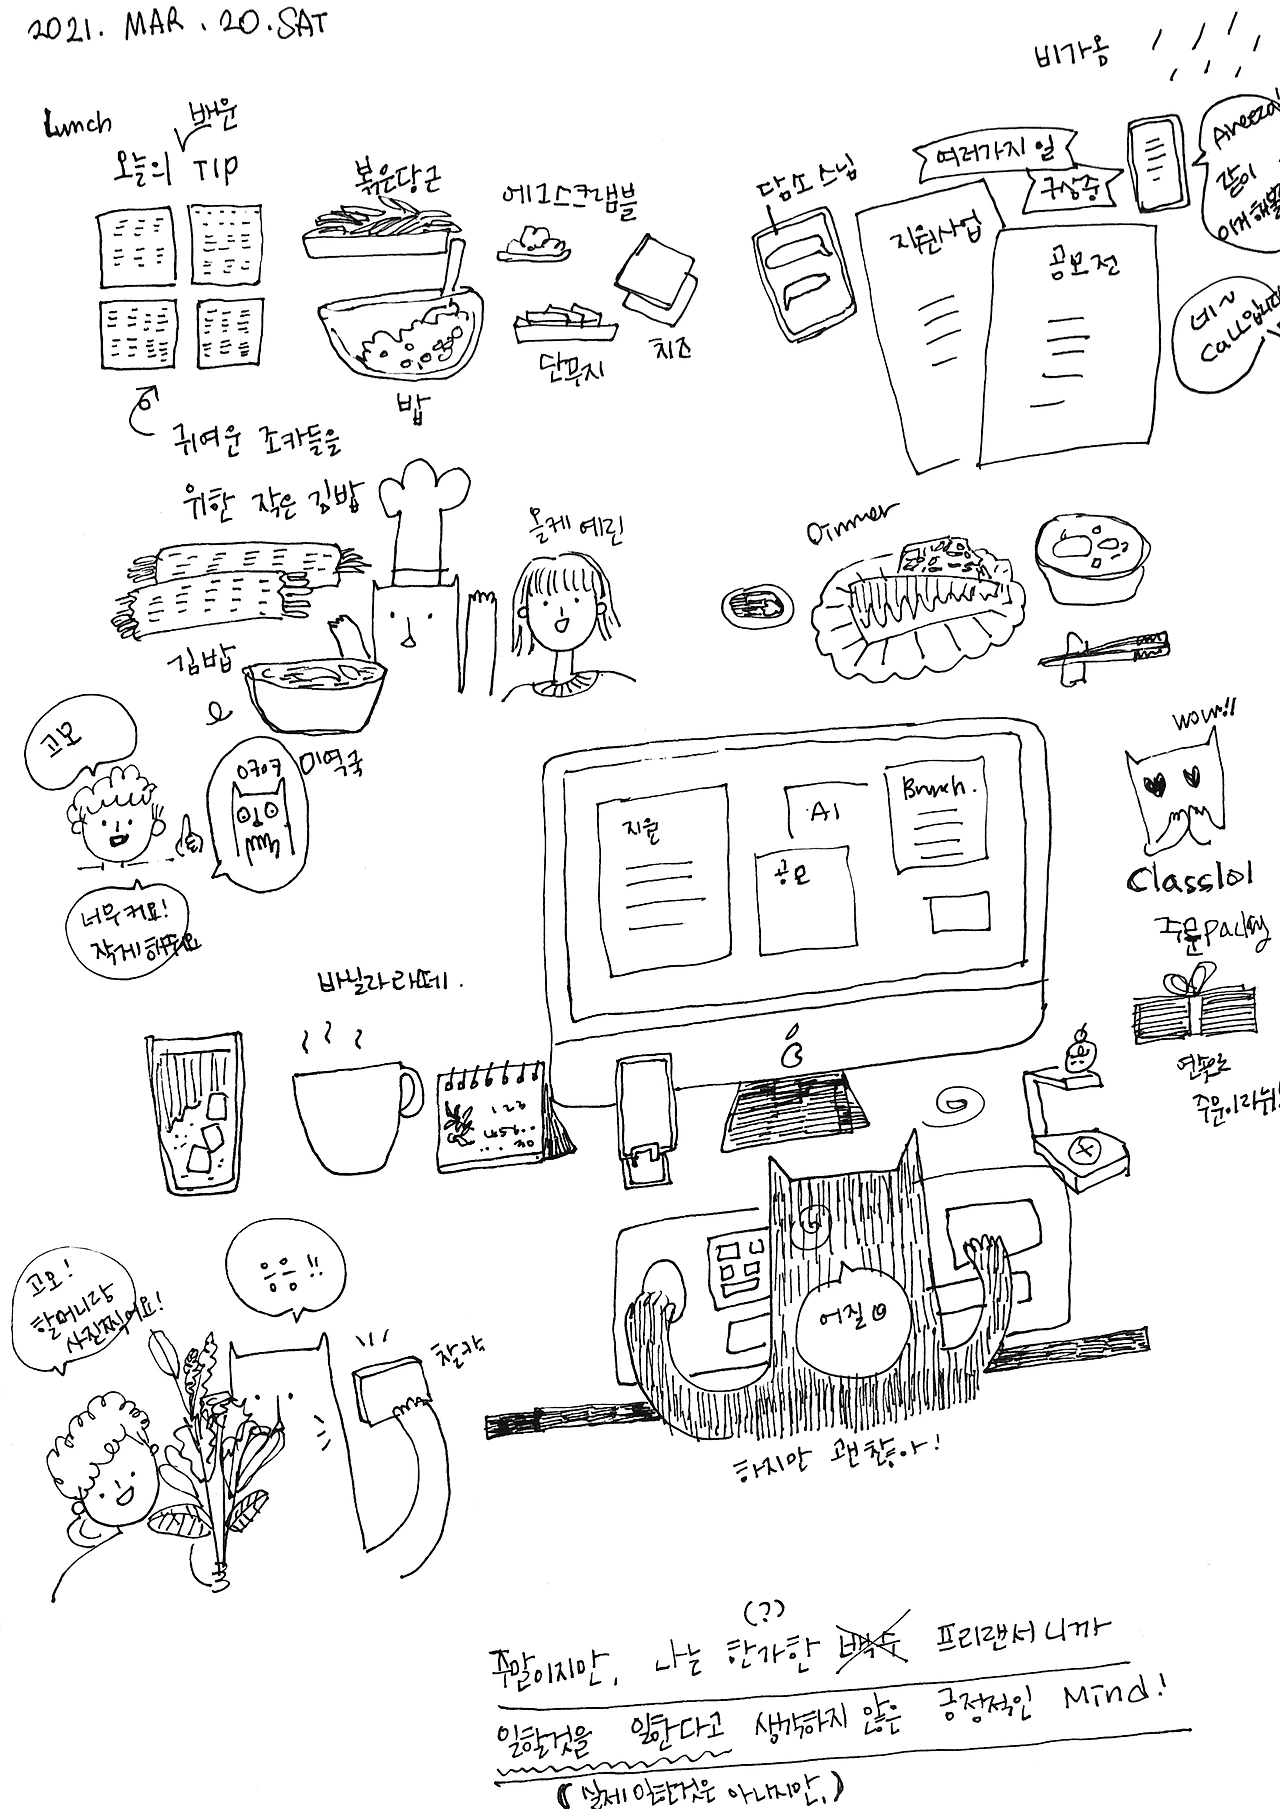 2021. MAR. 20. SAT
비가옴
Lunch
배운
오늘의 TIP
볶은당근
에그스크램블
단무지
치즈
밥
귀여운 조카들을
위한 작은 김밥
김밥
올케 예린
미역국
고모
너무커요!
작게해주세요
담소스님
여러가지 일
구상중
지원사업
공모전
같이
네~
Call입니다
Dinner
지원
AI
공모
Brunch.
wow!!
Class101
주문
바닐라라떼.
1 2 3
고모!
할머니랑
사진찍어요!
응응!!
찰칵
어질@
하지만 괜찮아!
(?)
주말이지만, 나는 한가한 백수 프리랜서니까
일할것을 일한다고 생각하지 않은 긍정적인 Mind!
(실제 한가한것은 아니지만,)